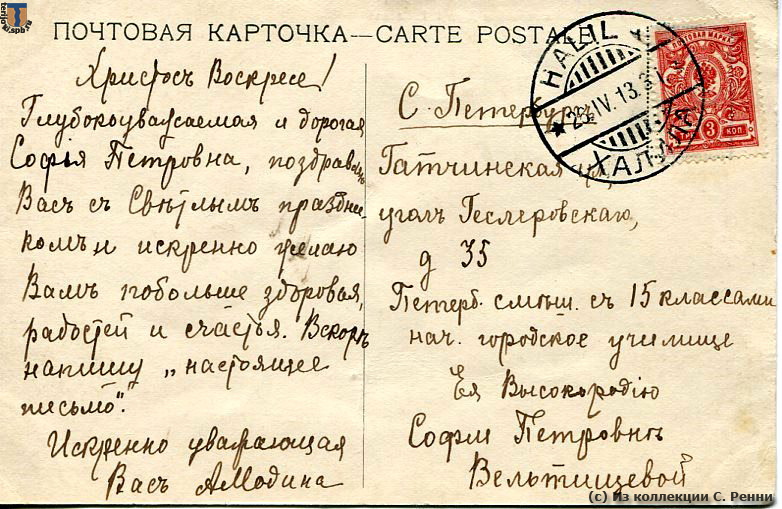 terijoki.spb.ru
ПОЧТОВАЯ КАРТОЧКА—CARTE POSTALE
Христосъ Воскресе!
Глубокоуважаемая и дорогая
Софья Петровна, поздравляю
Васъ съ Свѣтлымъ праздни-
комъ и искренно желаю
Вамъ побольше здоровья,
радостей и счастья. Вскорѣ
напишу „настоящее
письмо".
Искренно уважающая
Васъ АМодина
HALILA
26.IV.13.3
ХАЛИЛА
ПОЧТОВАЯ МАРКА
3 КОП
С. Петербургъ
Гатчинская ул,
уголъ Геслеровскаго,
д 35
Петерб. съ 15 классами
нач. городское училище
Ея Высокородію
Софіи Петровнѣ
Вельтищевой
(c) Из коллекции С. Ренни